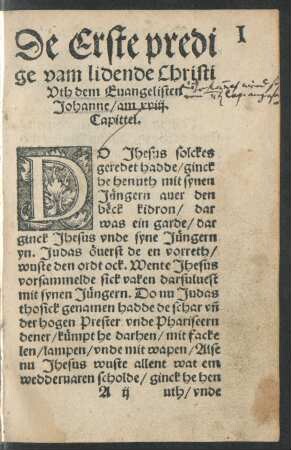 I
De Erste predi
ge vam lidende Christi
Vth dem Euangelisten
Johanne/am xviij.
Capittel.
DO Jhesus solckes
geredet hadde/ginck
he henuth mit synen
Jüngern auer den
beck kidron/dar
was ein garde/dar
ginck Jhesus vnde syne Jüngern
yn. Judas öuerst de en vorreth/
wuste den ordt ock. Wente Jhesus
vorsammelde sick vaken darsuluest
mit synen Jüngern. Do nu Judas
thosick genamen hadde de schar vñ
der hogen Prester vnde Phariseern
dener/kümpt he darhen/mit facke
len/lampen/vnde mit wapen/Alse
nu Jhesus wuste allent wat em
wedderuaren scholde/ginck he hen
A ij uth/vnde